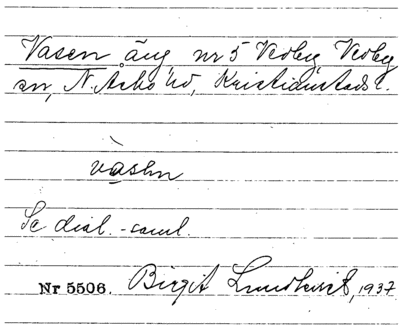 Vasen äng nr 5 Vedby Vedby
sn, N. Åsbo hd, Kristianstads l.
vàsən
Se dial.-saml.
Nr 5506. Birgit Lundkvist, 1937